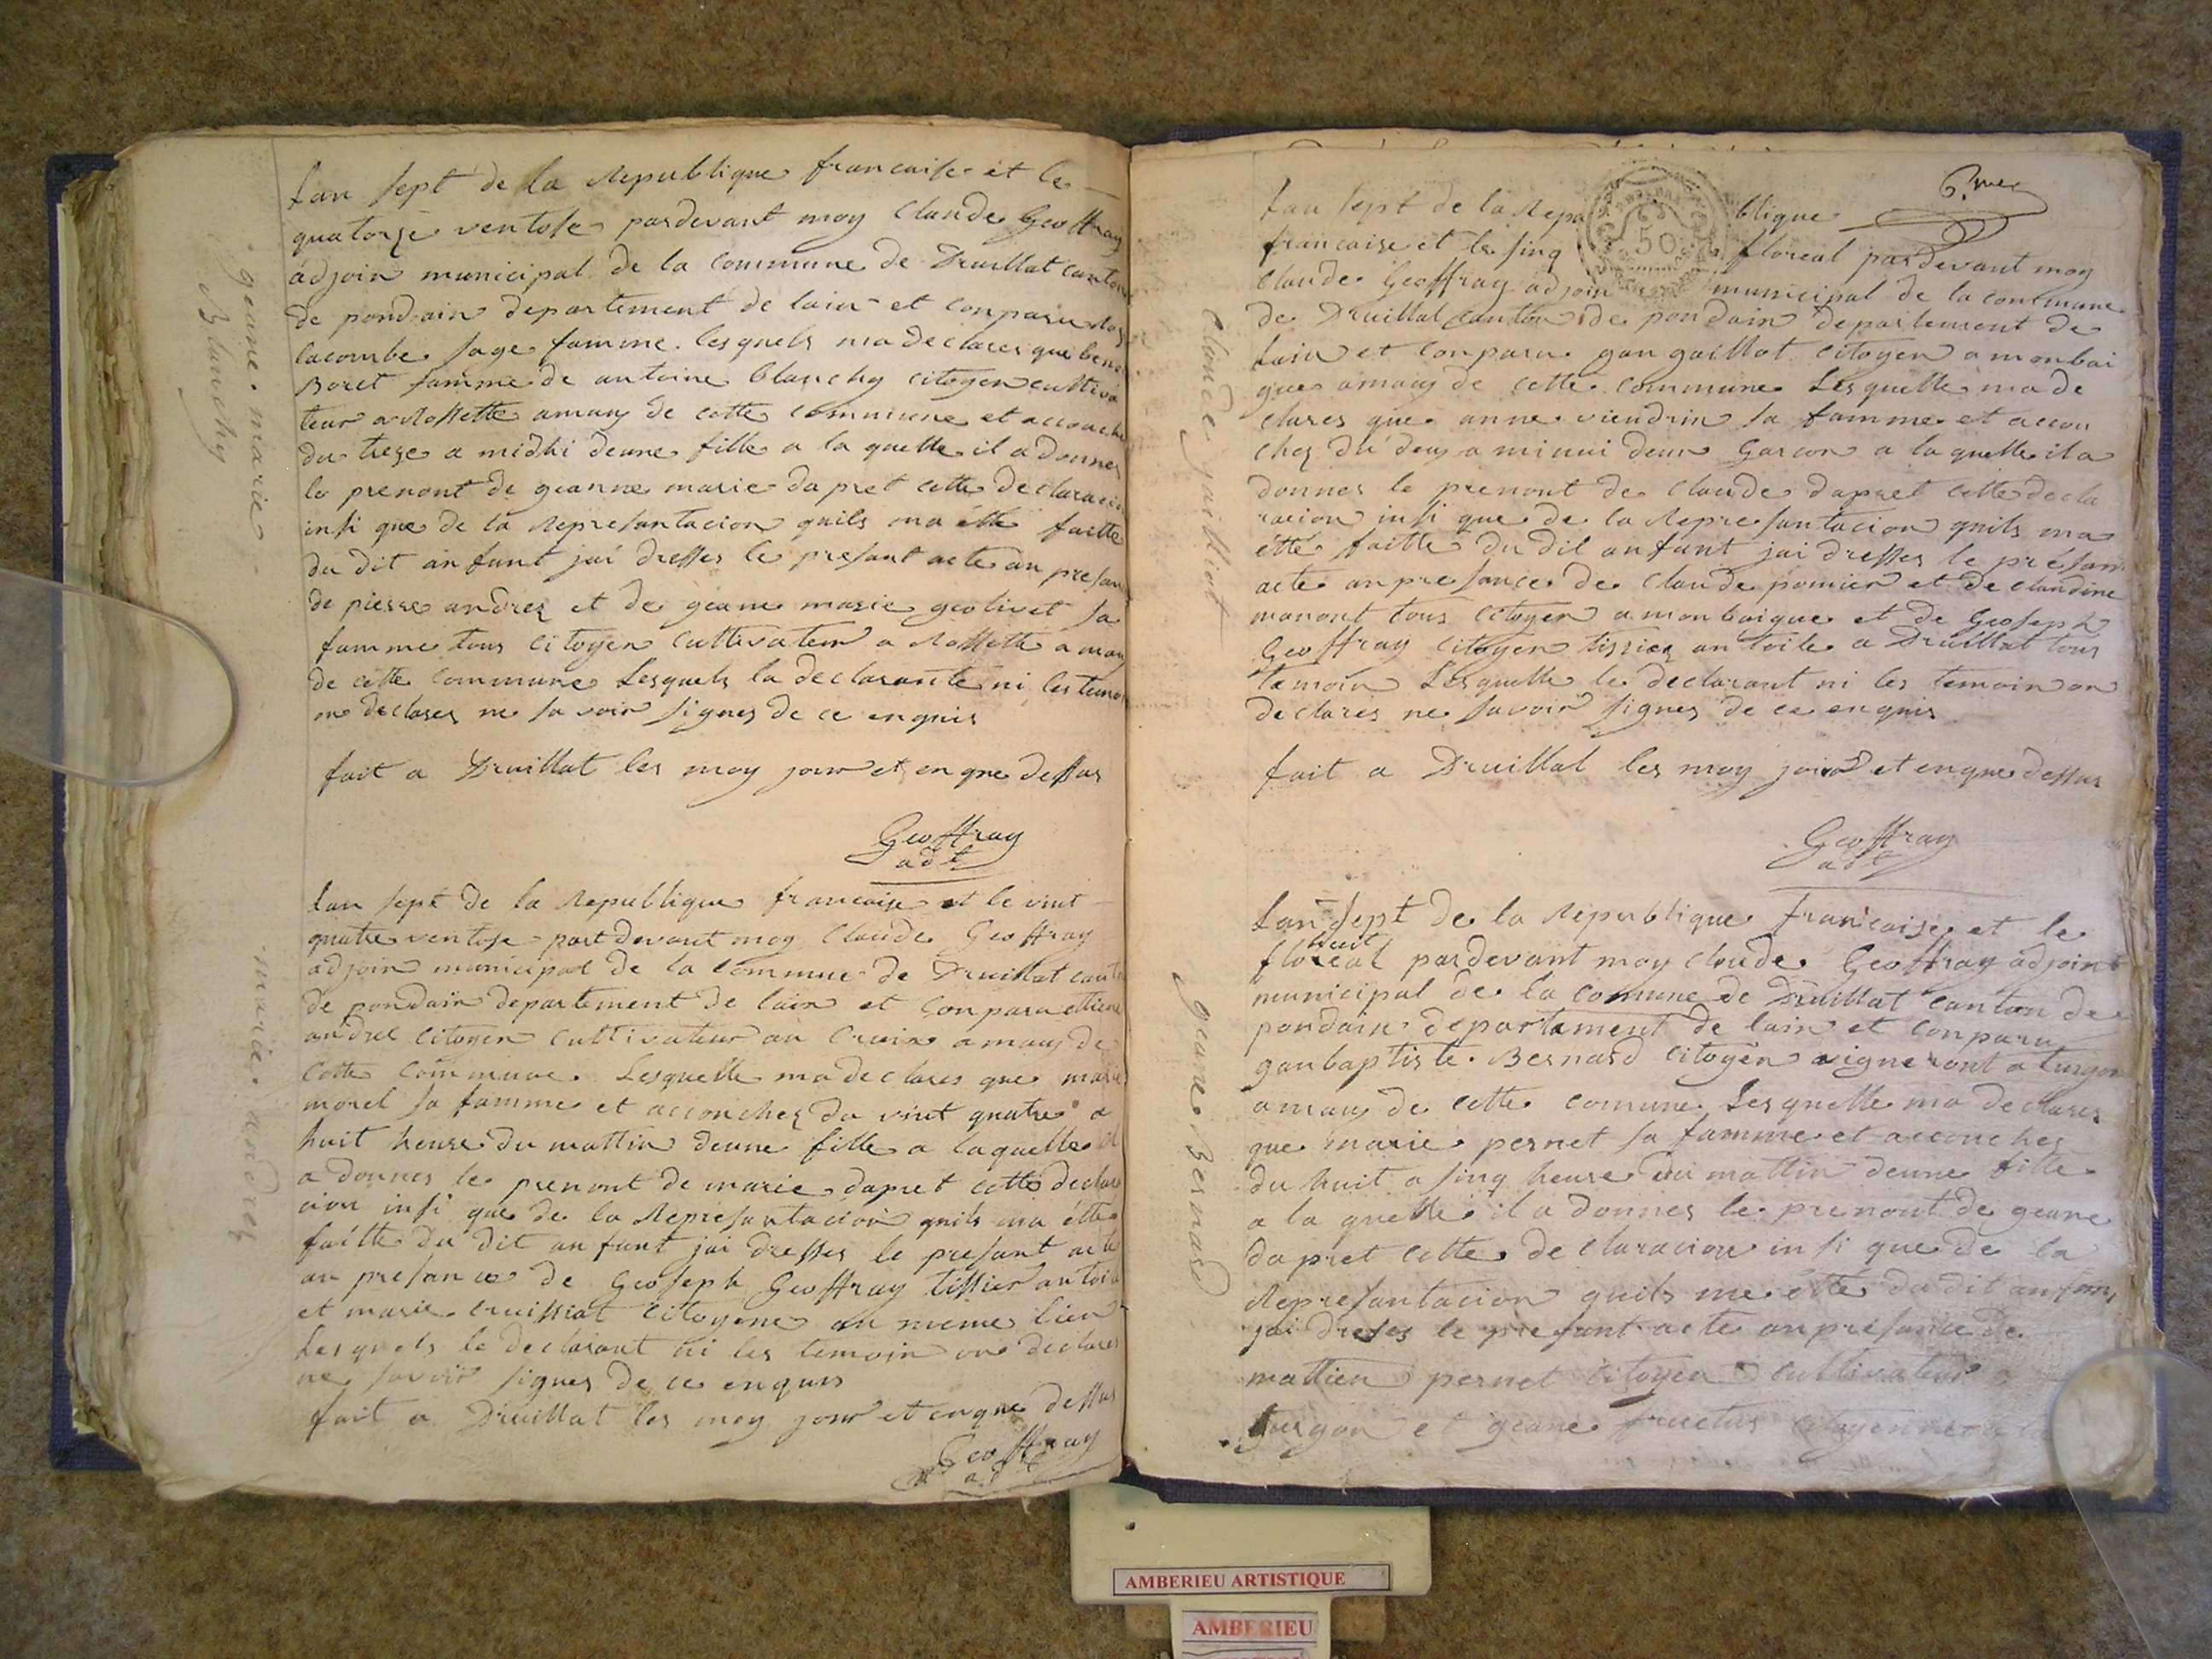 geane marie
Blanchy
Lan sept de la Republique francaise et le
quatorze ventose pardevant moy Claude Geoffray
adjoin municipal de la commune de Druillat canton
de pondain departement de lain et conparu
lacombe sage famme lesquels ma declares que
Boret famme de antoine Blanchy citoyen cultiva
teur a Rossette amau de cette commune et accouche
du treze a midhi deune fille a la quelle il a donnes
le prenont de geanne marie dapret cette declaracion
insi que de la Represantacion quils ma ette faitte
du dit anfant jai dresses le presant acte an presan
de pierre andrez et de geane marie geolivet sa
famme tous citoyen cultivateur a Rossette amau
de cette commune Lesquels la declarante ni les temoi
on declares ne savoir signes de ce enquis
fait a Druillat les moy jour et en que dessus
Geoffray
adt
marie andrez
Lan sept de la Republique francaise et le vint
quatre ventose pardevant moy Claude Geoffray
adjoin municipal de la commue de Druillat canto
de pondain departement de lain et conparu ettiene
andrez citoyen cultivateur au Cruix amau de
cette commune Lesquelle ma declares que marie
morel sa famme et accouchez du vint quatre a
huit heure du mattin deune fille a laquelle il
a donnes le prenont de marie dapret cette declara
cion insi que de la Represantacion quils ma ette
faitte du dit anfant jai dresses le presant acte
an presance de Geoseph Geoffray tissier antoile
et marie cruissiat citoyene au meme lieu
Lesquels le declarant ni les temoin on declares
ne savoir signes de ce enquis
fait a Druillat les moy jour et en que dessus
Geoffray
adt
6.me
claude gaillot
Lan sept de la Republique
50
francaise et le sinq floreal pardevant moy
Claude Geoffray adjoin municipal de la commune
de Druillat canton de pondain departement de
lain et conparu gan gaillot citoyen a monbai
gue amau de cette commune Lesquelle ma de
clares que anne viendrin sa famme et accou
chez du deux a minui deun Garcon a la quelle il a
donnes le prenont de Claude dapret cette decla
racion insi que de la Represantacion quils ma
ette faitte du dit anfant jai dresses le presan
acte an presance de claude pomier et de claudine
manont tous citoyen a monbaigue et de Geoseph
Geoffray citoyen tissier antoile a Druillat tous
temoin Lesquelle le declarant ni les temoin on
declares ne savoir signes de ce enquis
fait a Druillat les moy jour et en que dessus
Geoffray
adt
geane Bernard
Lan sept de la Republique Francaise et le
huit
floreal pardevant moy claude Geoffray adjoint
municipal de la comune de Druillat canton de
pondain departament de lain et conparu
ganbaptiste Bernard citoyen vigneront a turgon
amau de cette comune Lesquelle ma declares
que marie pernet sa famme et accouches
du huit a sinq heure du mattin deune fille
a la quelle il a donnes le prenont de geane
dapret cette declaracion insi que de la
Represantacion quils me ette du dit anfan
jai dreses le presant acte an presance de
mattieu pernet citoyen cultivateur
turgon et geane citoyenne
AMBERIEU ARTISTIQUE
AMBERIEU